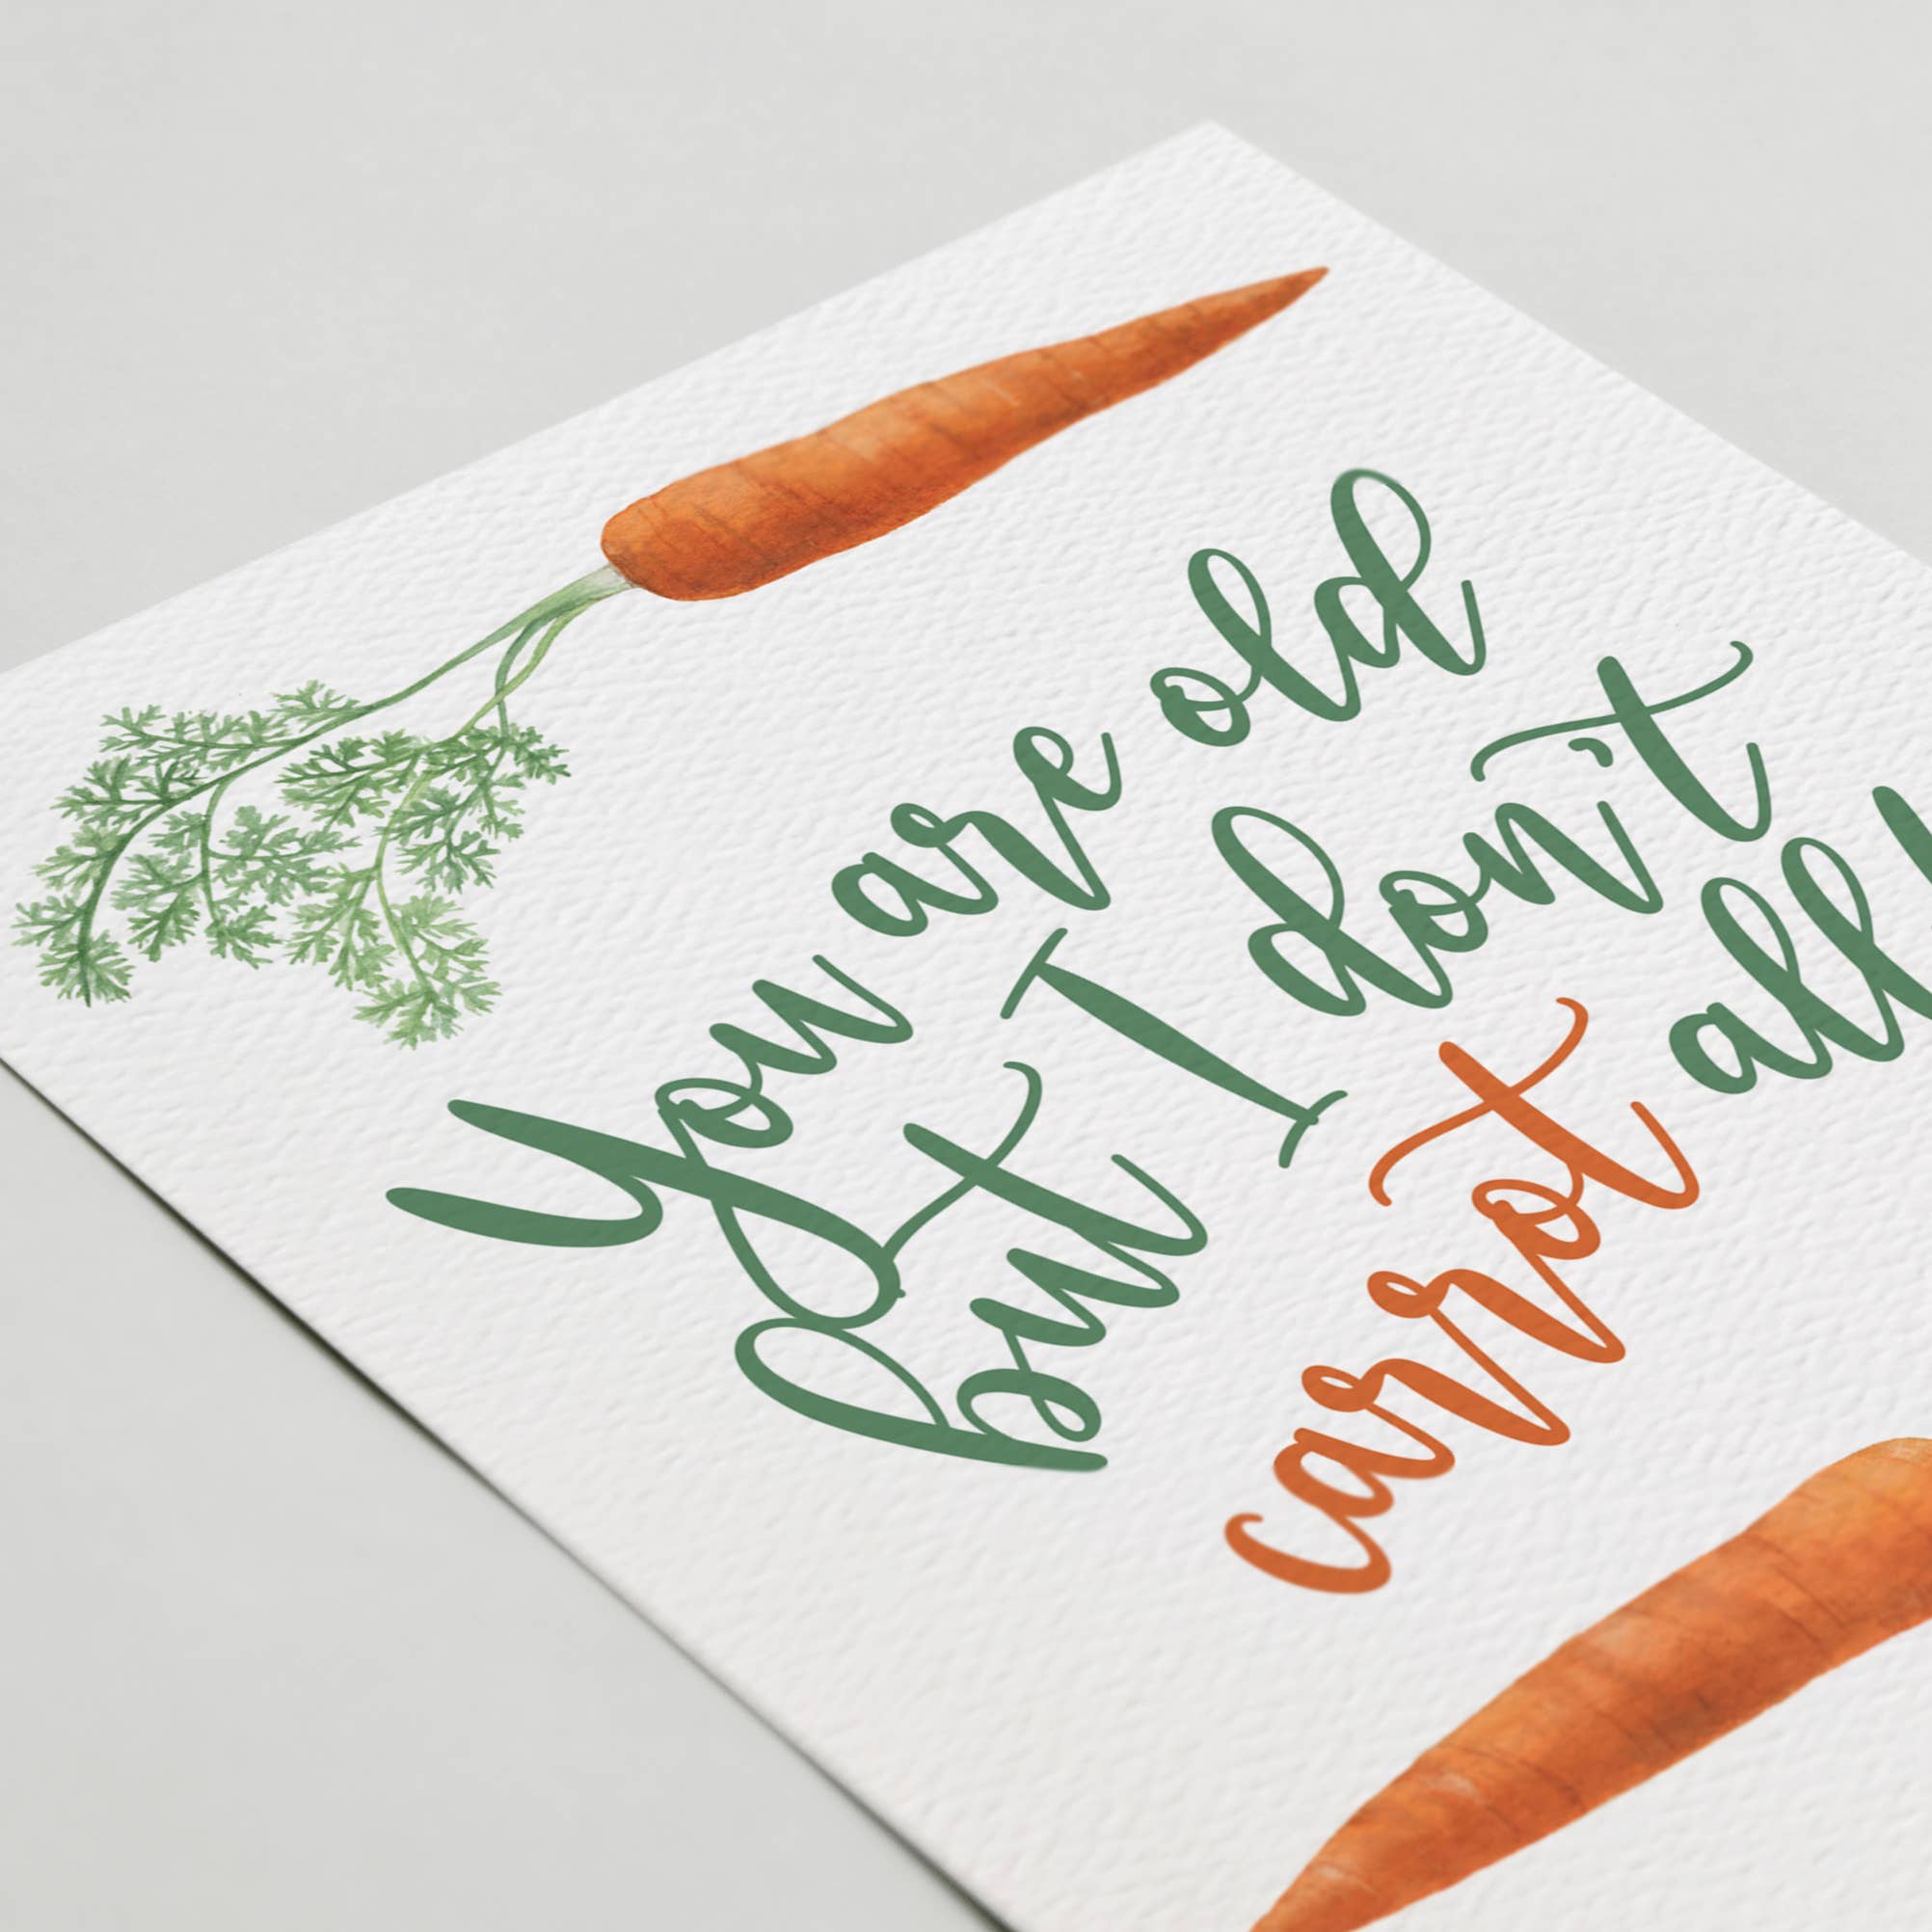 You are old
but I don't
carrot all!